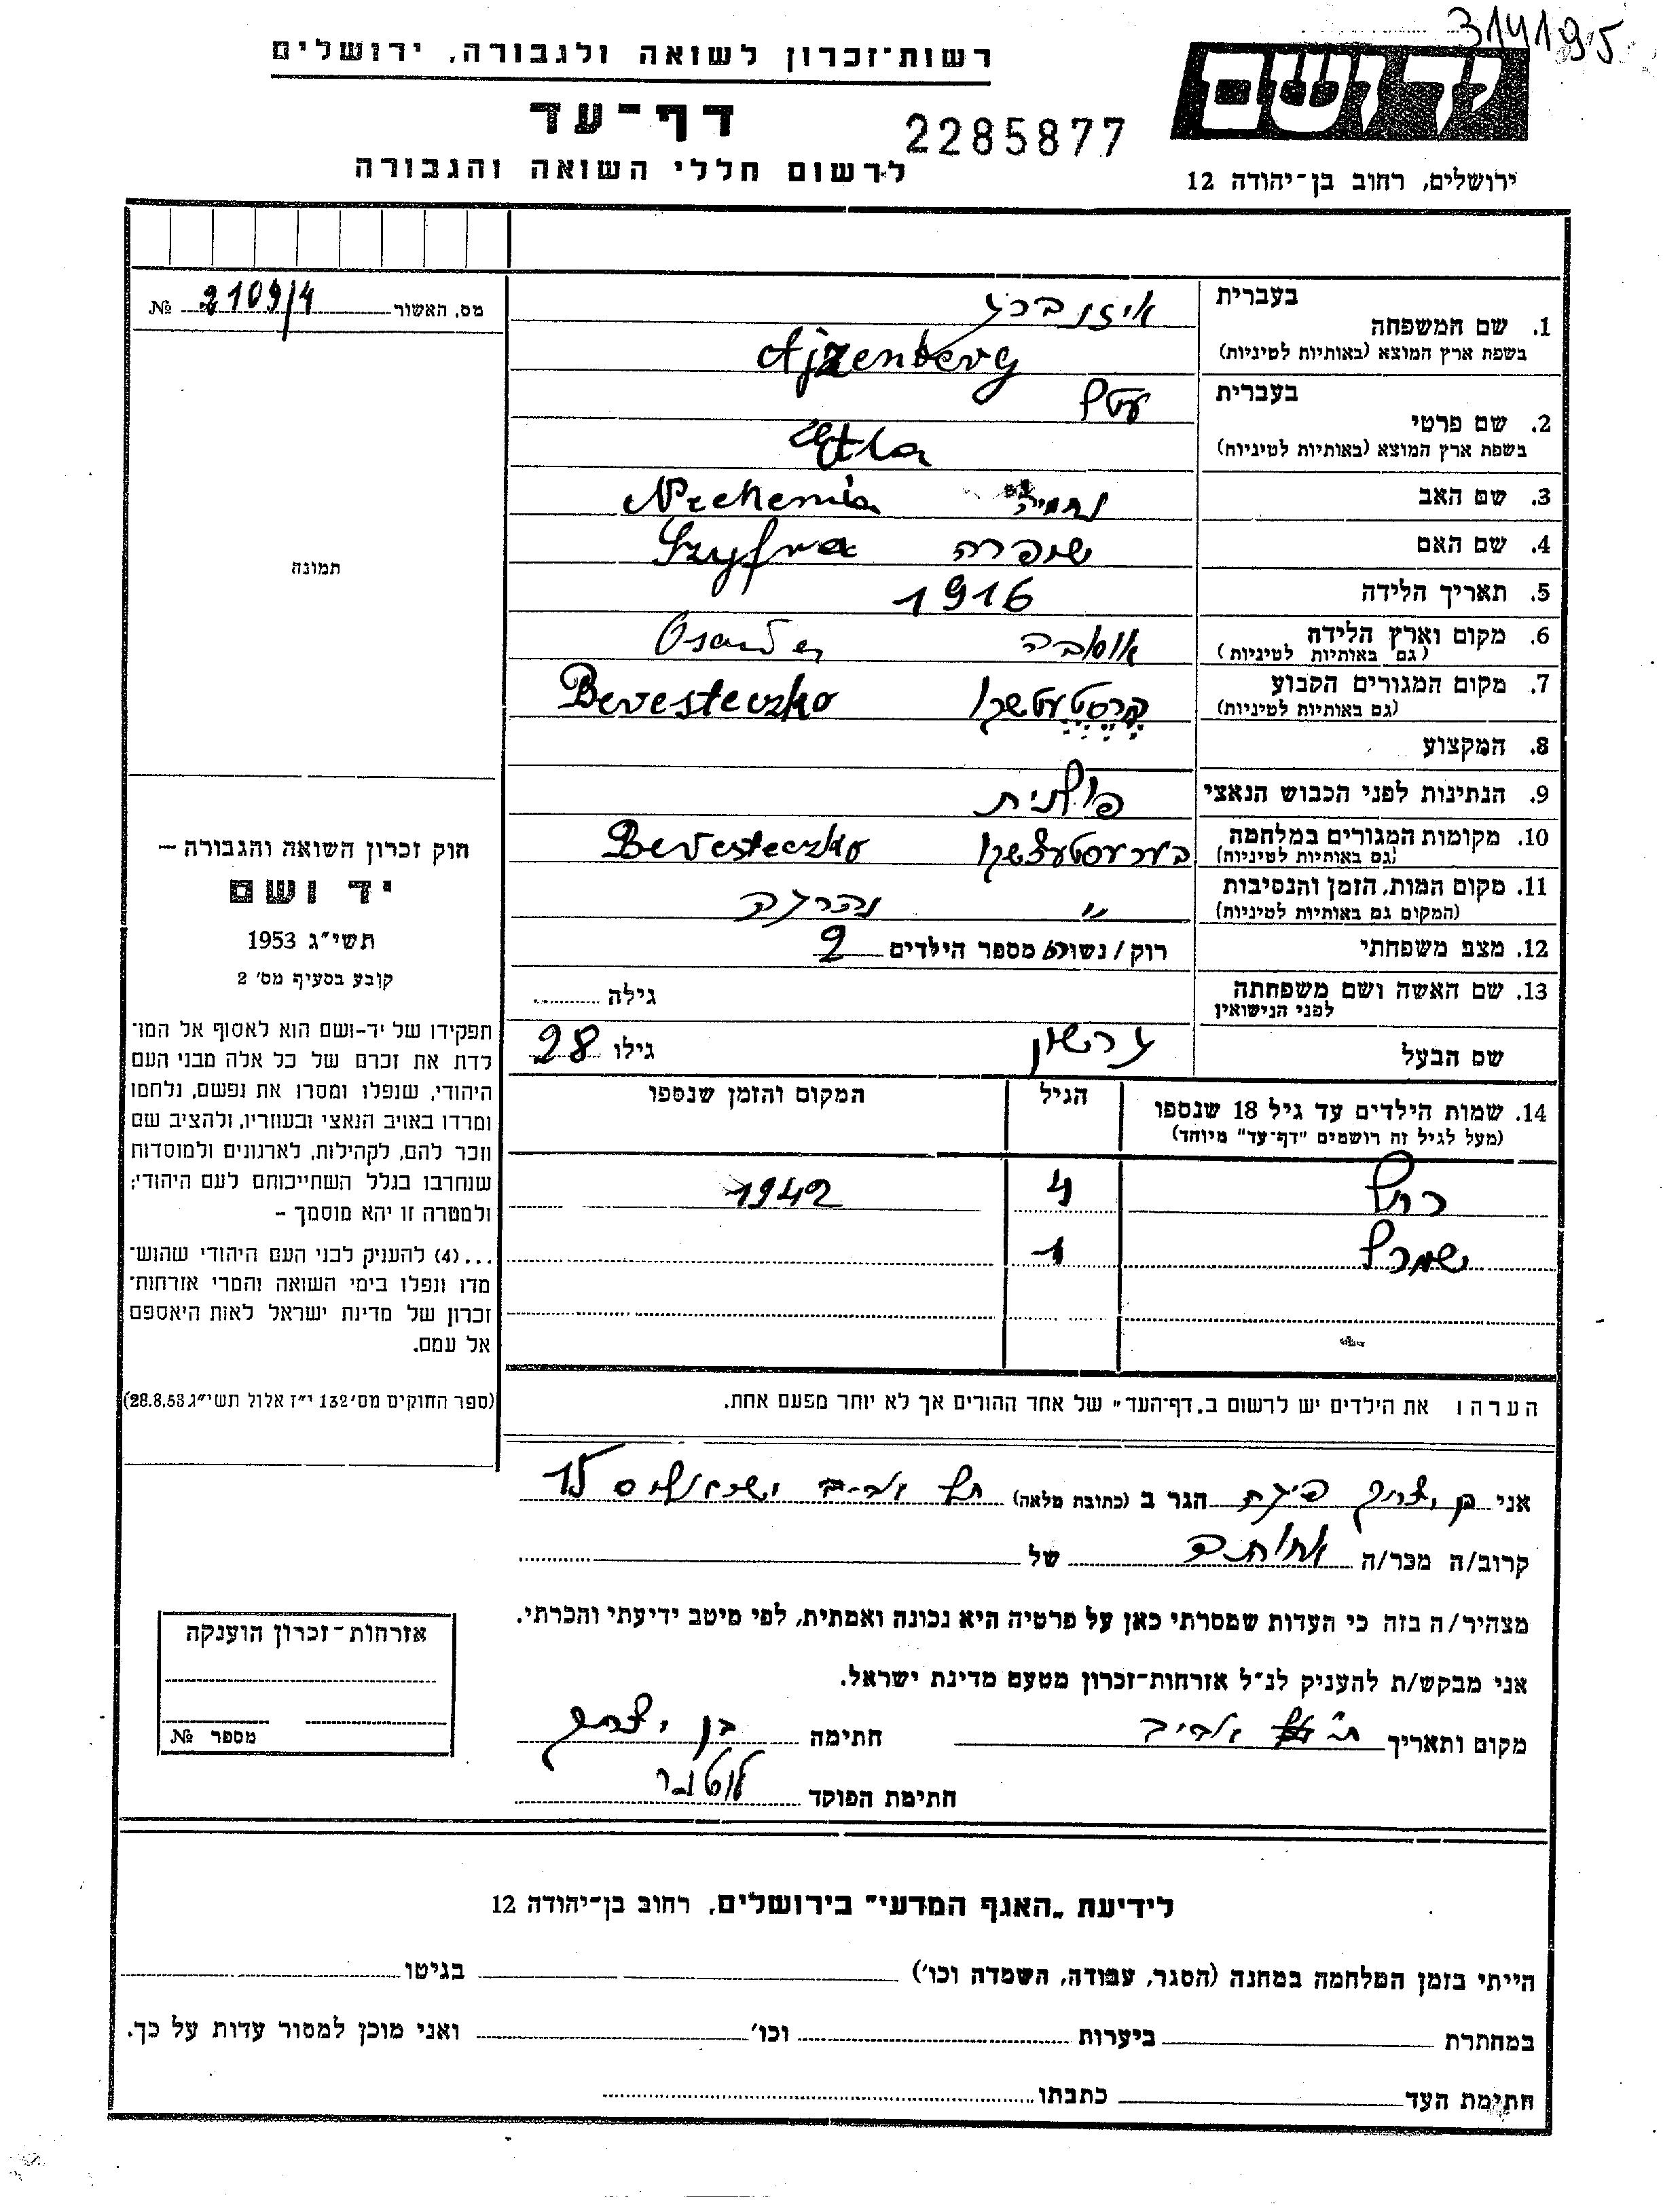 314195
רשות־זכרון לשואה ולגבורה, ירושלים
יד ושם
דף־עד
2285877
לרשום חללי השואה והגבורה
ירושלים, רחוב בן־יהודה 12
בעברית
איזנברג
1. שם המשפחה
בשפת ארץ המוצא (באותיות לטיניות)
Ajzenberg
בעברית
עטל
2. שם פרטי
בשפת ארץ המוצא (באותיות לטיניות)
Etla
3. שם האב
נחמיה Nechemia
4. שם האם
שיפרה Szyfra
5. תאריך הלידה
1916
6. מקום וארץ הלידה
(גם באותיות לטיניות)
אוסובה
7. מקום המגורים הקבוע
(גם באותיות לטיניות)
Beresteczko
8. המקצוע
9. הנתינות לפני הכבוש הנאצי
פולנית
10. מקומות המגורים במלחמה
(גם באותיות לטיניות)
בערעסטעצשקו Beresteczko
11. מקום המות, הזמן והנסיבות
(המקום גם באותיות לטיניות)
" נהרגה
12. מצב משפחתי
רוק/נשוי מספר הילדים 2
13. שם האשה ושם משפחתה
לפני הנישואין
גילה
שם הבעל
גרשון
גילו 28
14. שמות הילדים עד גיל 18 שנספו
(מעל לגיל זה רושמים "דף־עד" מיוחד)
הגיל
המקום והזמן שנספו
רחל 4 1942
שמרל 1
הערה: את הילדים יש לרשום ב„דף־העד" של אחד ההורים אך לא יותר מפעם אחת.
מס. האשור 2109/4 №
תמונה
חוק זכרון השואה והגבורה –
יד ושם
תשי"ג 1953
קובע בסעיף מס' 2
תפקידו של יד-ושם הוא לאסוף אל המו־
לדת את זכרם של כל אלה מבני העם
היהודי, שנפלו ומסרו את נפשם, נלחמו
ומרדו באויב הנאצי ובעוזריו, ולהציב שם
וזכר להם, לקהילות, לארגונים ולמוסדות
שנחרבו בגלל השתייכותם לעם היהודי;
ולמטרה זו יהא מוסמך –
...(4) להעניק לבני העם היהודי שהוש־
מדו ונפלו בימי השואה והמרי אזרחות־
זכרון של מדינת ישראל לאות היאספם
אל עמם.
(ספר החוקים מס' 132 י"ז אלול תשי"ג 28.8.53)
אני בן יצחק הגר ב (כתובת מלאה) תל אביב 15
קרוב/ה מכר/ה אחותה של
מצהיר/ה בזה כי העדות שמסרתי כאן על פרטיה היא נכונה ואמתית, לפי מיטב ידיעתי והכרתי.
אני מבקש/ת להעניק לנ"ל אזרחות־זכרון מטעם מדינת ישראל.
מקום ותאריך אביב חתימה בן יצחק
חתימת הפוקד
אזרחות־זכרון הוענקה
מספר №
לידיעת „האגף המדעי" בירושלים, רחוב בן־יהודה 12
הייתי בזמן המלחמה במחנה (הסגר, עבודה, השמדה וכו') בגיטו
במחתרת ביערות וכו' ואני מוכן למסור עדות על כך.
חתימת העד כתבתו